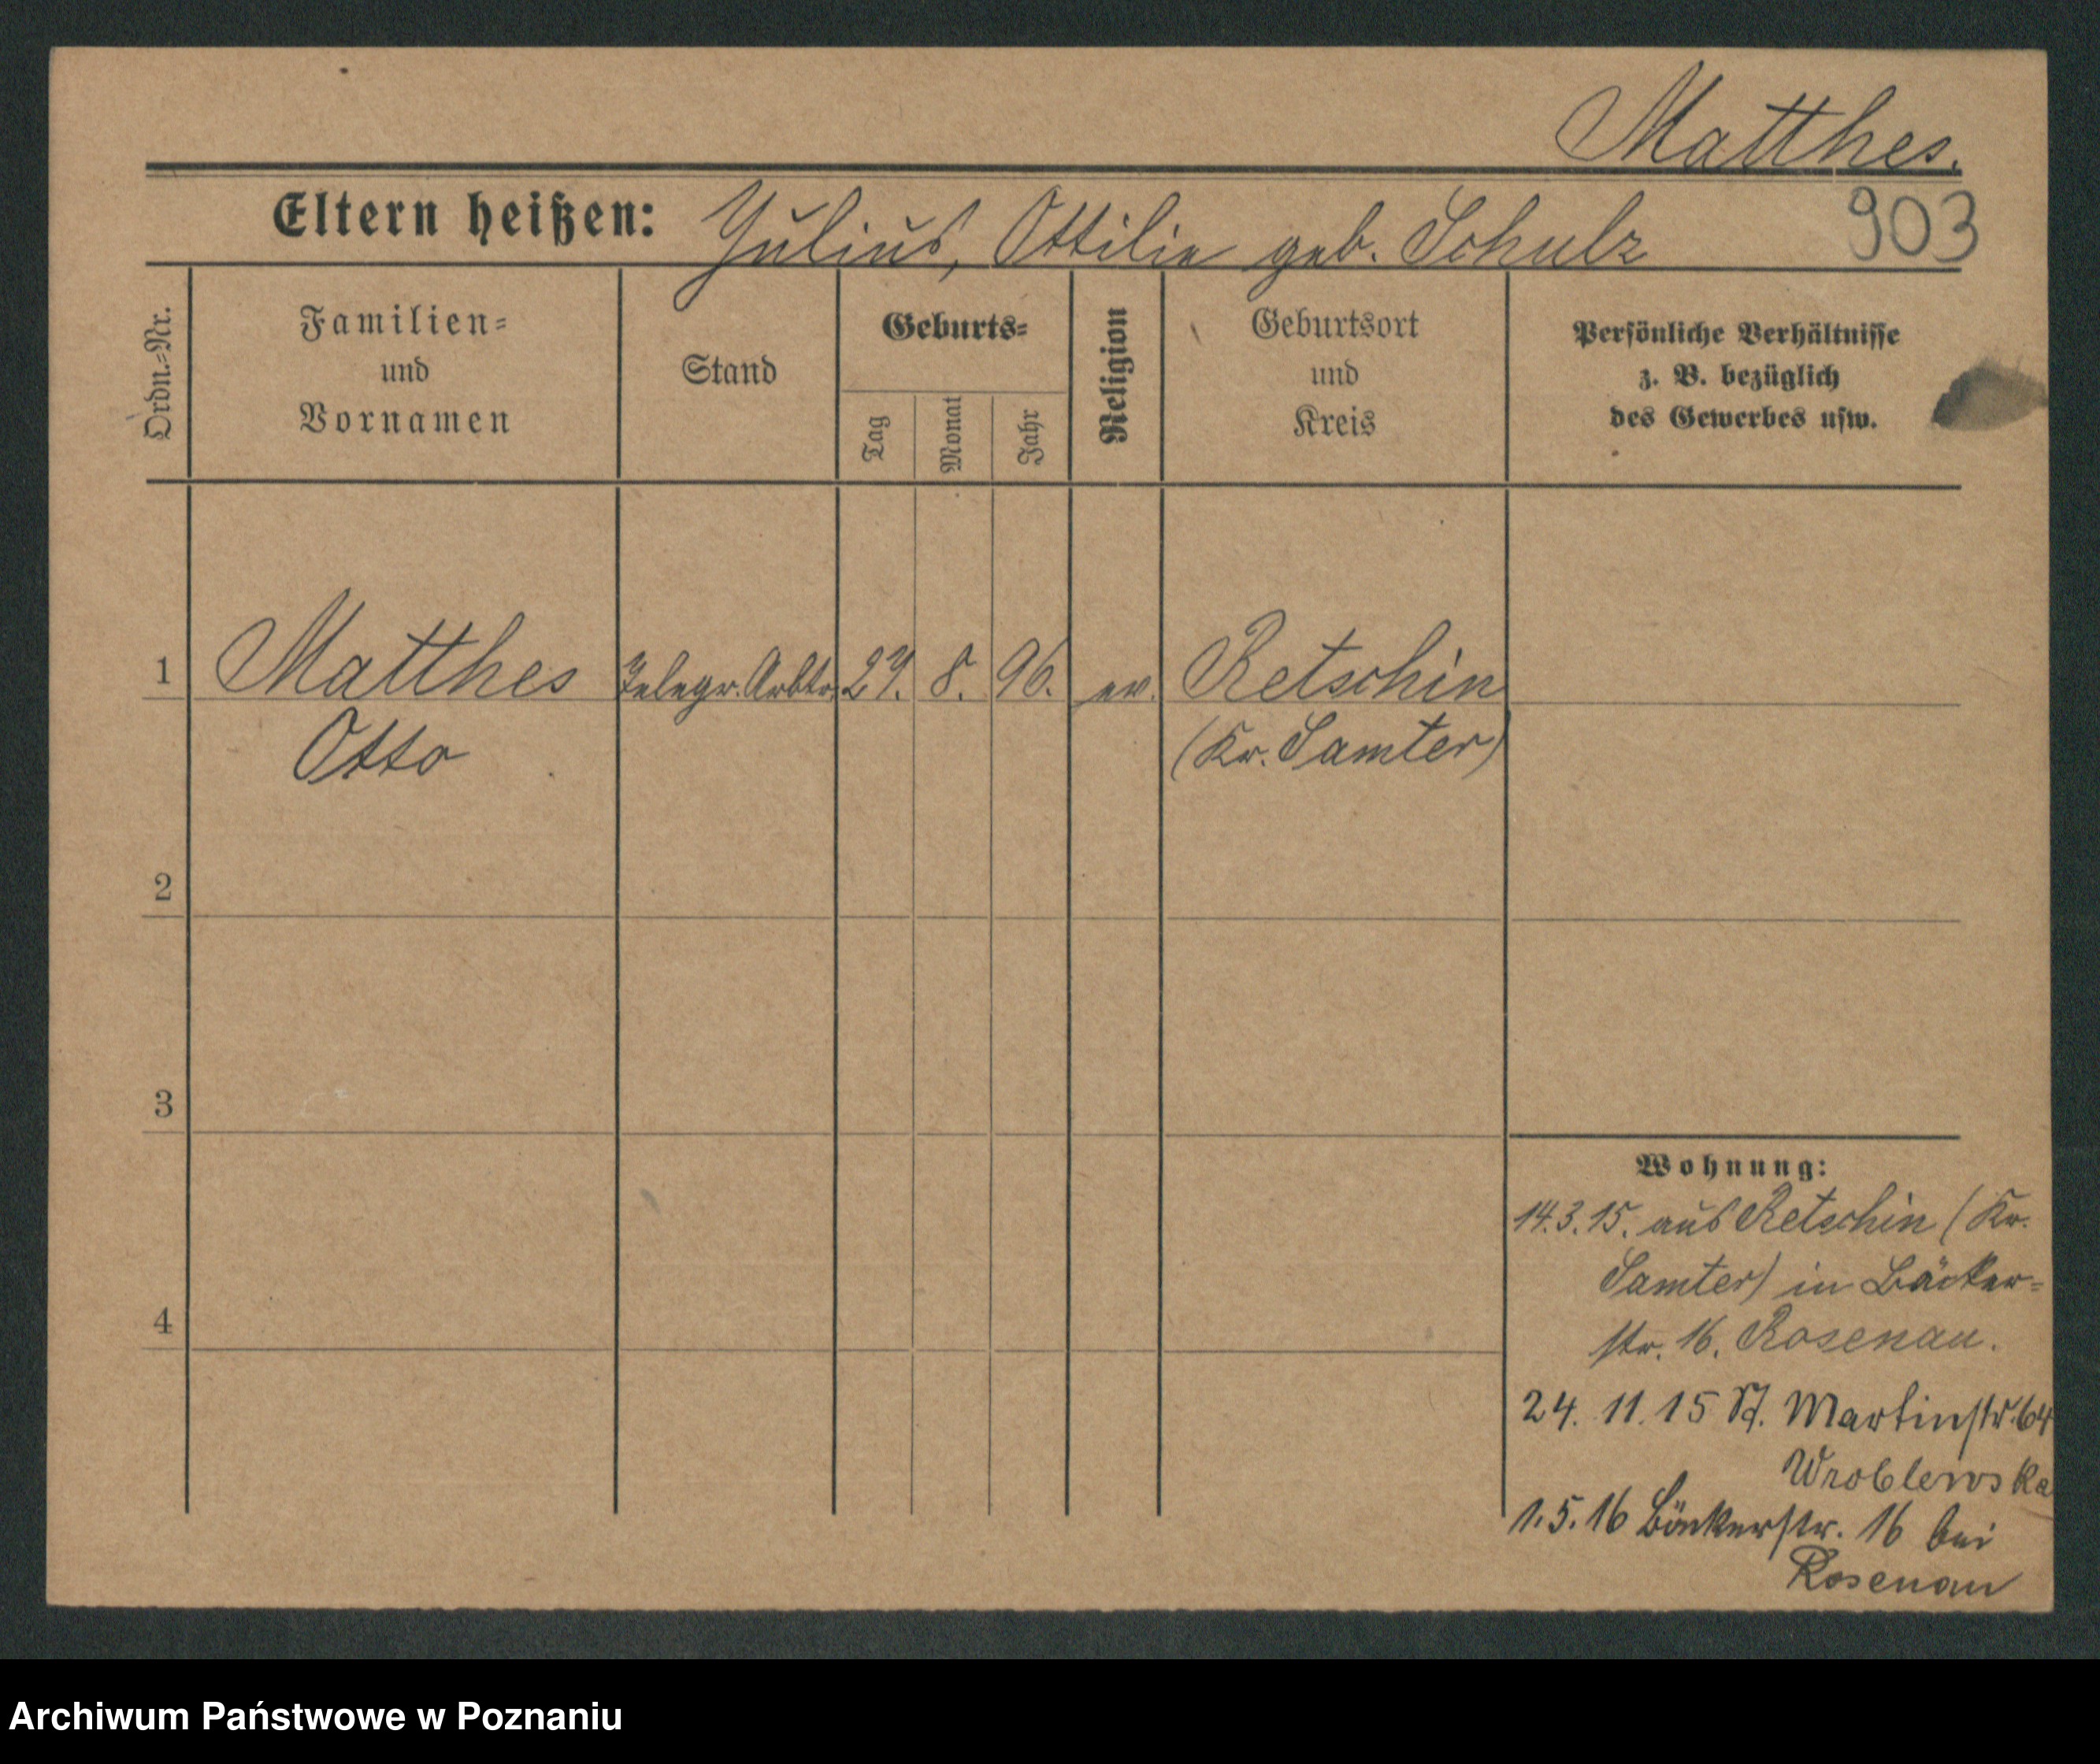 Matthes.
Eltern heißen: Julius, Ottilie geb. Schulz 903
Ordn.=Nr.
Familien=
und
Vornamen
Stand
Geburts=
Tag
Monat
Jahr
Religion
Geburtsort
und
Kreis
Persönliche Verhältnisse
z. B. bezüglich
des Gewerbes usw.
1 Matthes Telegr. Arbtr. 27. 8. 96. ev. Retschin
Otto (Kr. Samter)
2
3
4
Wohnung:
14.3.15. aus Retschin (Kr.
Samter) in Bäcker=
str. 16. Rosenau.
24. 11. 15 St. Martinstr. 64
Wroblewska
1.5.16 Bäckerstr. 16 bei
Rosenau
Archiwum Państwowe w Poznaniu